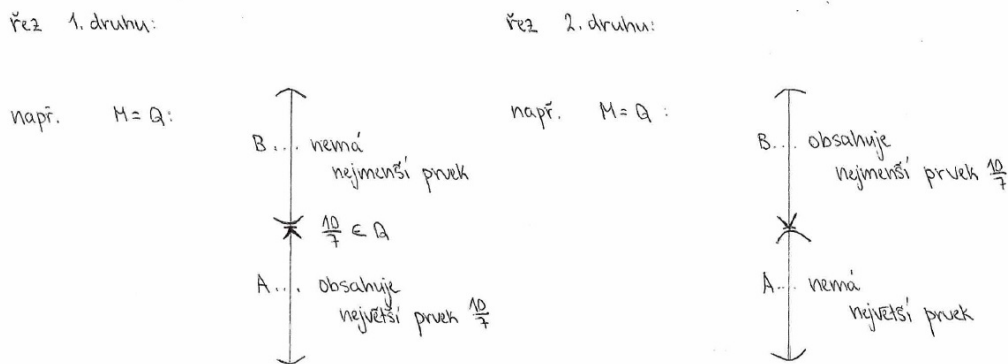 řez 1. druhu:
např. M = Q:
B.... nemá
nejmenší prvek
10/7 ∈ Q
A.... obsahuje
největší prvek 10/7
řez 2. druhu:
např. M = Q :
B.... obsahuje
nejmenší prvek 10/7
A.... nemá
největší prvek